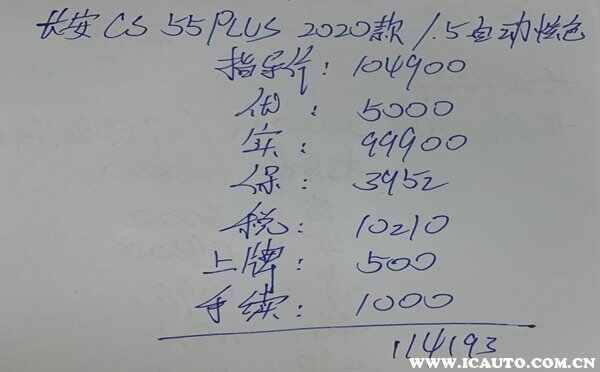 长安 CS 55 PLUS 2020款 1.5自动炫色
指导价: 104900
优: 5000
实: 99900
保: 3952
税: 10210
上牌: 500
手续: 1000
114193
WWW.ICAUTO.COM.CN